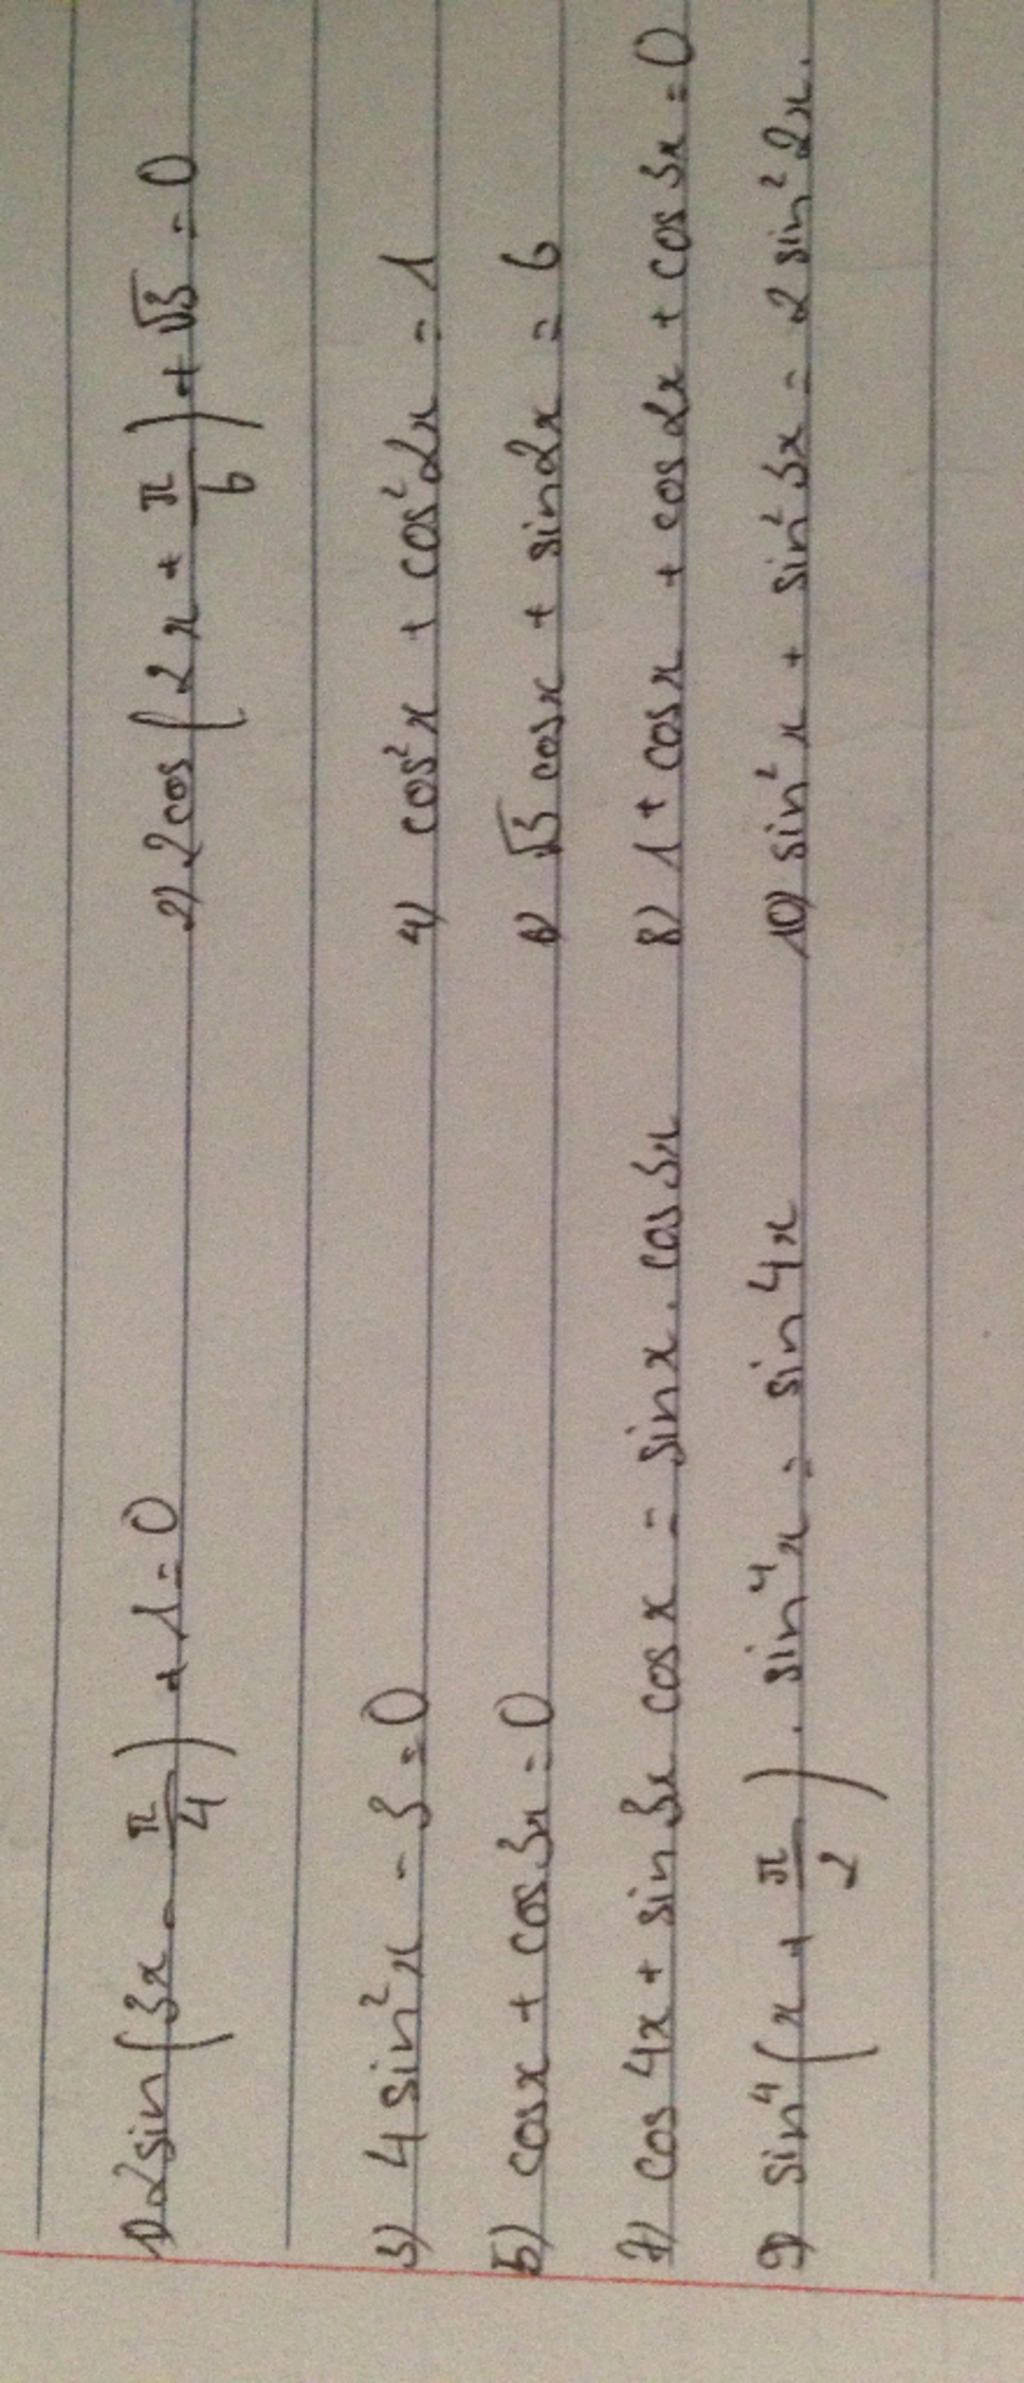 1) 2sin(3x - π/4) + 1 = 0
2) 2cos(2x + π/6) + √3 = 0
3) 4 sin²x - 3 = 0
4) cos²x + cos²2x = 1
5) cosx + cos3x = 0
6) √3 cosx + sin2x = 6
7) cos4x + sin3x cosx = sinx.cos3x
8) 1 + cosx + cos2x + cos3x = 0
9) sin⁴(x + π/2) . sin⁴x = sin4x
10) sin²x + sin²3x = 2 sin²2x.